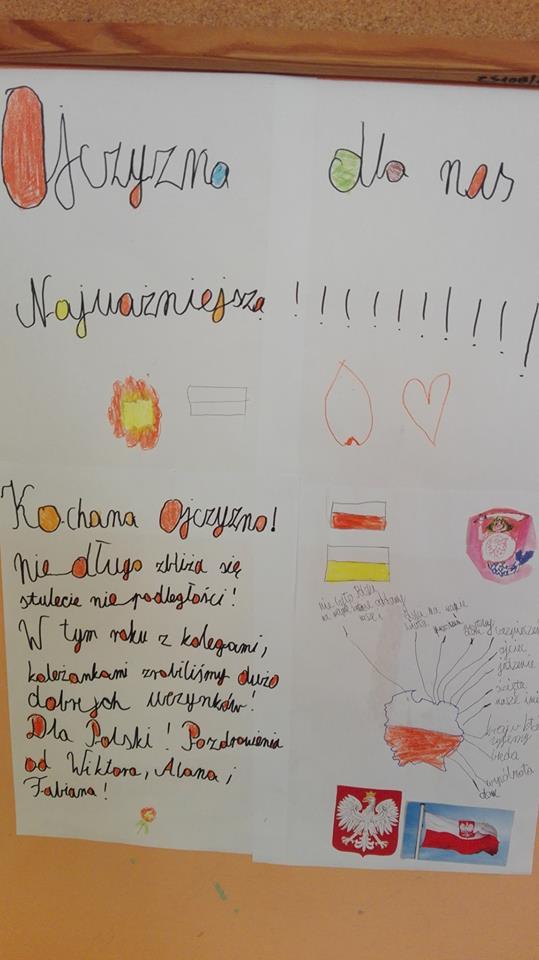 Ojczyzna dla nas
Najważniejsza ! ! ! ! ! ! ! ! ! !
Kochana Ojczyzno!
Nie długo zbliża się
stulecie nie podległości!
W tym roku z kolegami,
koleżankami zrobiliśmy dużo
dobrych uczynków!
Dla Polski! Pozdrowienia
od Wiktora, Alana i
Fabiana!
nie było Polski
na mapie
ojciec
jedzenie
święta
nasze
kraj w
żyjemy
bieda
wspólnota
dom